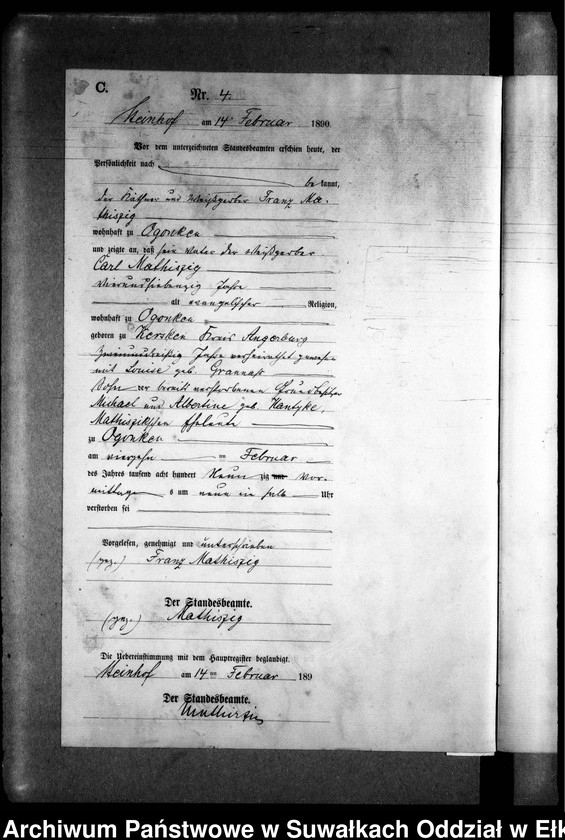 C.
Nr. 4.
Steinhof am 14ten Februar 1890.
Vor dem unterzeichneten Standesbeamten erschien heute, der
Persönlichkeit nach
bekannt,
der Käthner und Weißgerber Franz Ma-
thiszig
wohnhaft zu Ogonken
und zeigte an, daß sein Vater der Weißgerber
Carl Mathiszig
vierundsiebenzig Jahre
alt evangelischer Religion,
wohnhaft zu Ogonken
geboren zu Kersken Kreis Angerburg
Jahre verheirathet gewesen
mit Louise geb. Grannas
Sohn der bereits verstorbenen Grundbesitzer
Michael und Albertine geb. Kantyke,
Mathiszik'schen Eheleute
zu Ogonken
am vierzehn ten Februar
des Jahres tausend acht hundert Neun zig Vor-
mittags um neun ein halb Uhr
verstorben sei
Vorgelesen, genehmigt und unterschrieben
(gez.) Franz Mathiszig
Der Standesbeamte.
(gez.) Mathiszig
Die Uebereinstimmung mit dem Hauptregister beglaubigt.
Steinhof am 14ten Februar 189
Der Standesbeamte.
Mathiszig
Archiwum Państwowe w Suwałkach Oddział w Ełk